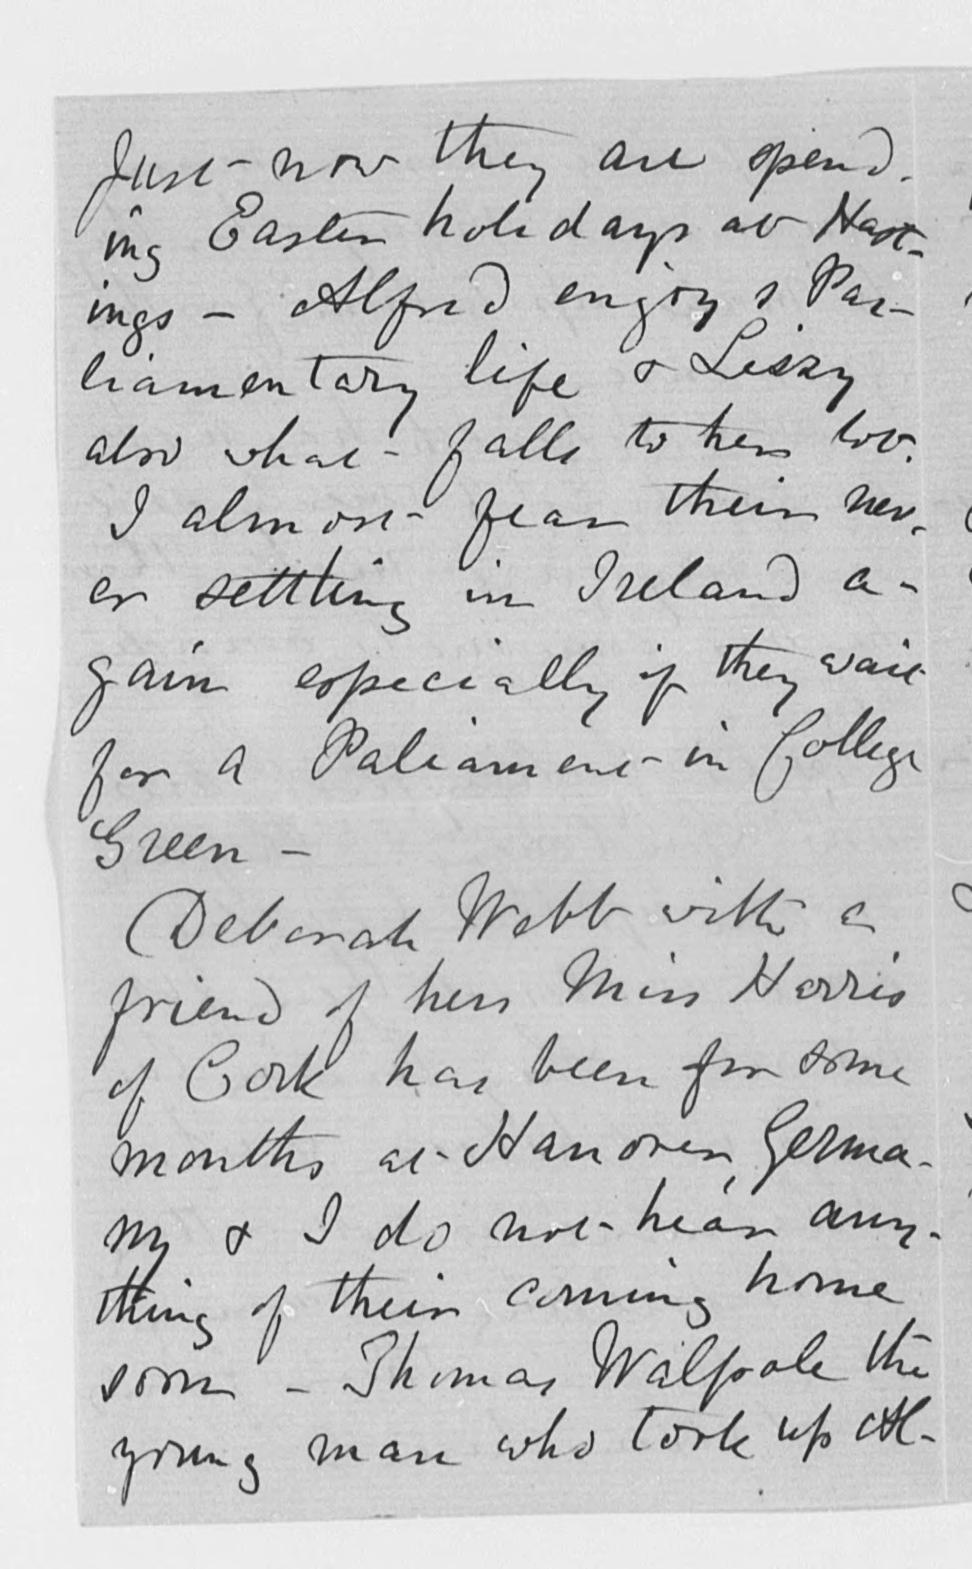 Just now they are spend-
ing Easter holidays at Hast-
ings - Alfred enjoys Par-
liamentary life & Lizzy
also what falls to her lot.
I almost fear their nev-
er settling in Ireland a-
gain especially if they wait
for a Paliament in College
Green -
Deborah Webb with a
friend of hers Miss Harris
of Cork has been for some
months at Hanover, Germa-
ny & I do not hear any-
thing of their coming home
soon - Thomas Walpole the
young man who took up Al-